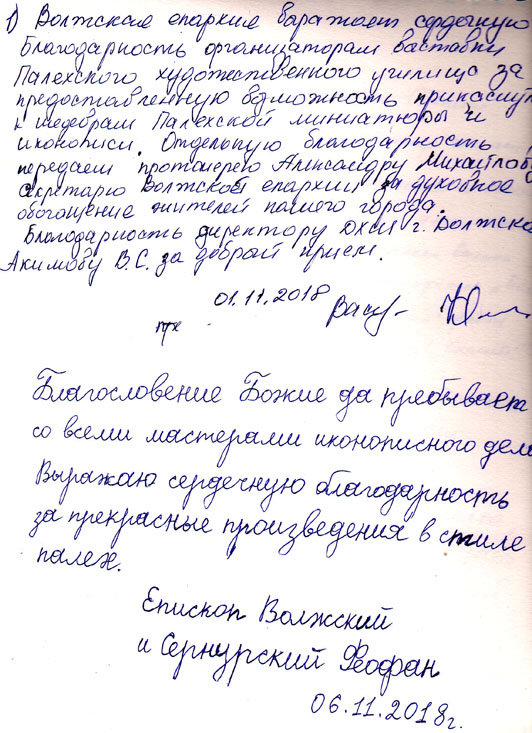 1) Волжская епархия выражает сердечную
благодарность организаторам выставки
Палехского художественного училища за
предоставленную возможность прикоснут
к шедеврам Палехской миниатюры и
иконописи. Отдельную благодарность
передаем протоиерею Александру Михайлову
секретарю Волжской епархии за духовное
обогощение жителей нашего города.
Благодарность директору ДХШ г. Волжска
Акимову В.С. за добрый прием.
01.11.2018
Благословение Божие да пребывает
со всеми мастерами иконописного дела
Выражаю сердечную благодарность
за прекрасные произведения в стиле
палех.
Епископ Волжский
и Сернурский Феофан
06.11.2018г.